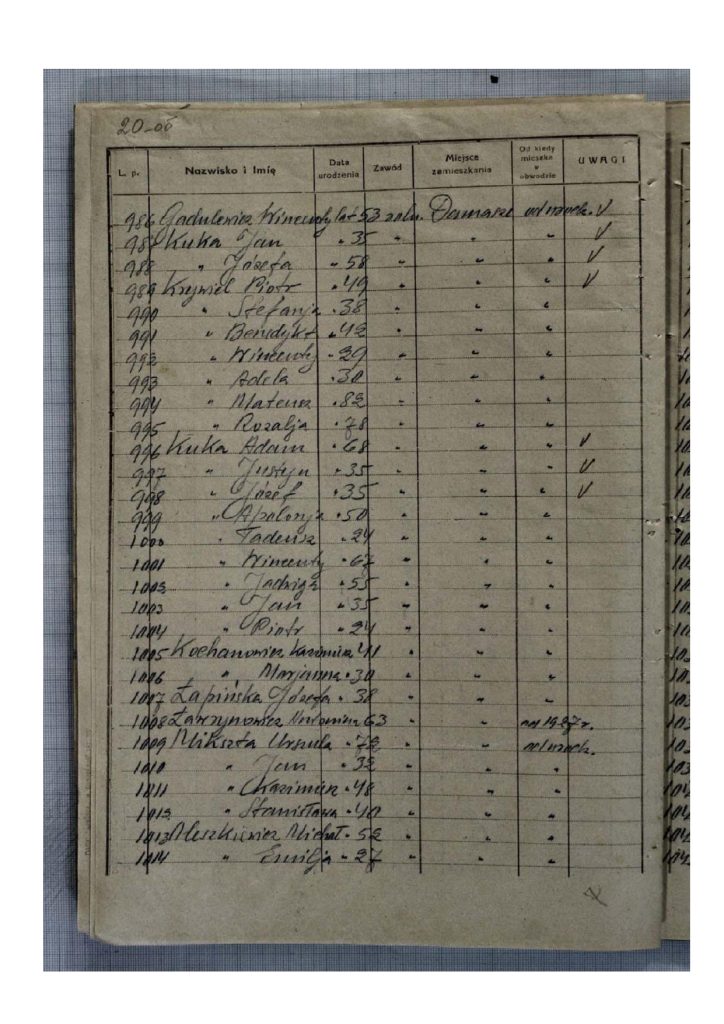 20-об
L. p. Nazwisko i Imię Data urodzenia Zawód Miejsce zamieszkania Od kiedy mieszka w obwodzie UWAGI
986 Gadulewicz Wincenty lat 53 roln. Damasze od urodz. V
987 Kuka Jan " 35 " " " V
988 " Józefa " 58 " " " V
989 Krywiel Piotr " 49 " " " V
990 " Stefanja " 38 " " "
991 " Benedykt " 42 " " "
992 " Wincenty " 29 " " "
993 " Adela " 30 " " "
994 " Mateusz " 82 " " "
995 " Rozalja " 78 " " "
996 Kuka Adam " 68 " " " V
997 " Justyn " 35 " " " V
998 " Józef " 35 " " " V
999 " Apolonja " 50 " " "
1000 " Tadeusz " 24 " " "
1001 " Wincenty " 67 " " "
1002 " Jadwiga " 55 " " "
1003 " Jan " 35 " " "
1004 " Piotr " 24 " " "
1005 Kochanowicz Kazimierz 41 " " "
1006 " Marjanna " 30 " " "
1007 Łapińska Józefa " 38 " " "
1008 Ławrynowicz Antonina 63 " " od 1927 r.
1009 Mikszta Urszula " 72 " " od urodz.
1010 " Jan " 32 " " "
1011 " Kazimierz " 48 " " "
1012 " Stanisława " 40 " " "
1013 Meszkiewicz Michał " 52 " " "
1014 " Emilja " 27 " " "